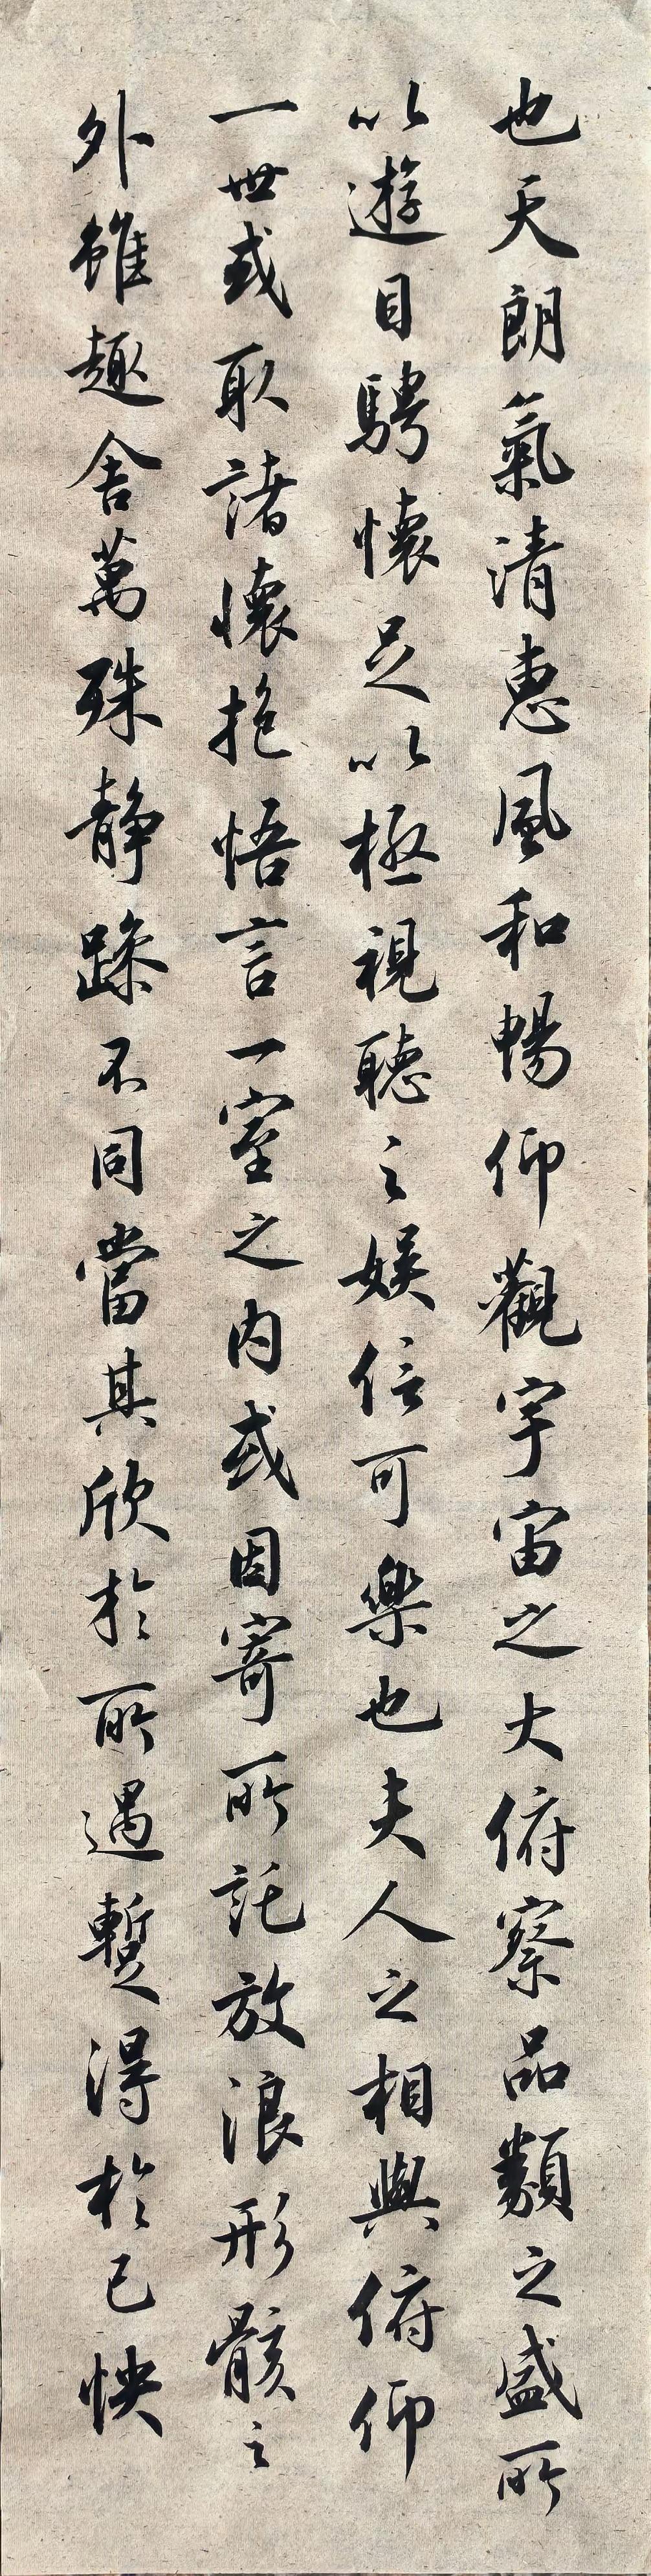 也天朗氣清惠風和暢仰觀宇宙之大俯察品類之盛所
以遊目騁懷足以極視聽之娛信可樂也夫人之相與俯仰
一世或取諸懷抱悟言一室之內或因寄所託放浪形骸之
外雖趣舍萬殊靜躁不同當其欣於所遇暫得於己怏